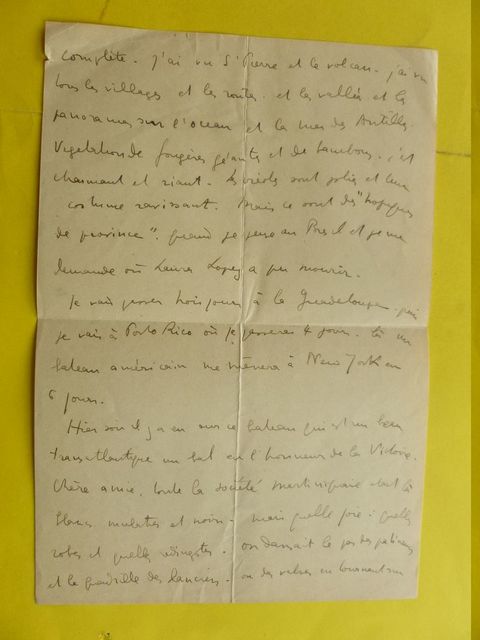 complète. J'ai vu St Pierre et le volcan. j'ai vu
tous les villages et les routes. et les vallées et les
panoramas sur l'océan et la mer des Antilles.
Végétation de fougères géantes et de bambous. c'est
charmant et riant. les créoles sont jolies et leur
costume ravissant. Mais ce sont des
de province". quand je pense au Brésil et je me
demande où Laura Lopez a pu mourir.
Je vais passer trois jours à la Guadeloupe. puis
je vais à Porto Rico où je passerai 4 jours. là un
bateau américain me mènera à New York en
6 jours.
Hier soir il y a eu sur ce bateau qui est un beau
transatlantique un bal en l'honneur de la Victoire.
Chère amie, toute la société martiniquaise était là
blancs, mulâtres et noirs. mais quelle joie : quelles
robes et quelles on dansait le pas des patineurs
et le quadrille des lanciers. ou des valses en tournant sur